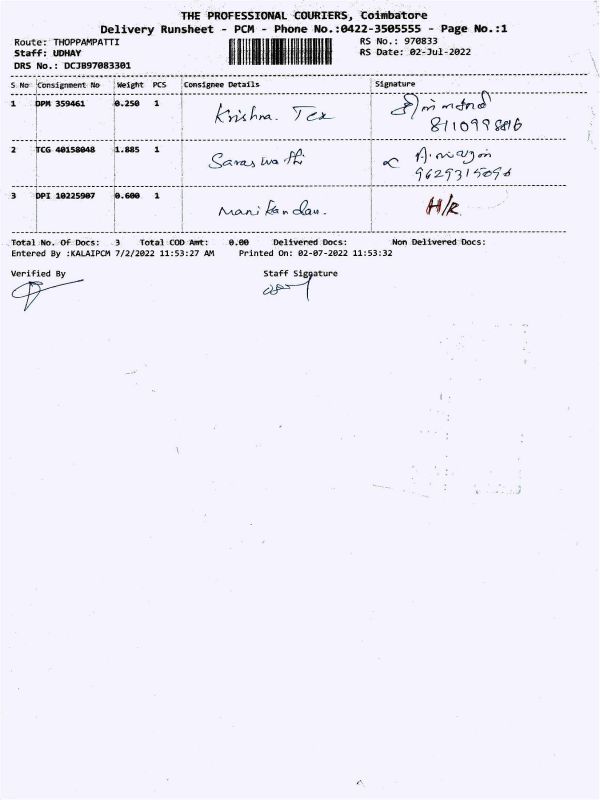 THE PROFESSIONAL COURIERS, Coimbatore
Delivery Runsheet - PCM - Phone No.:0422-3505555 - Page No.:1
Route: THOPPAMPATTI RS No.: 970833
Staff: UDHAY RS Date: 02-Jul-2022
DRS No.: DCJB97083301
S No Consignment No Weight PCS Consignee Details Signature
1 DPM 359461 0.250 1 Krishna. Tex
8110998816
2 TCG 40158048 1.885 1 Saraswathi
9629315096
3 DPI 10225907 0.600 1 Manikandan. H/R
Total No. Of Docs: 3 Total COD Amt: 0.00 Delivered Docs: Non Delivered Docs:
Entered By :KALAIPCM 7/2/2022 11:53:27 AM Printed On: 02-07-2022 11:53:32
Verified By Staff Signature